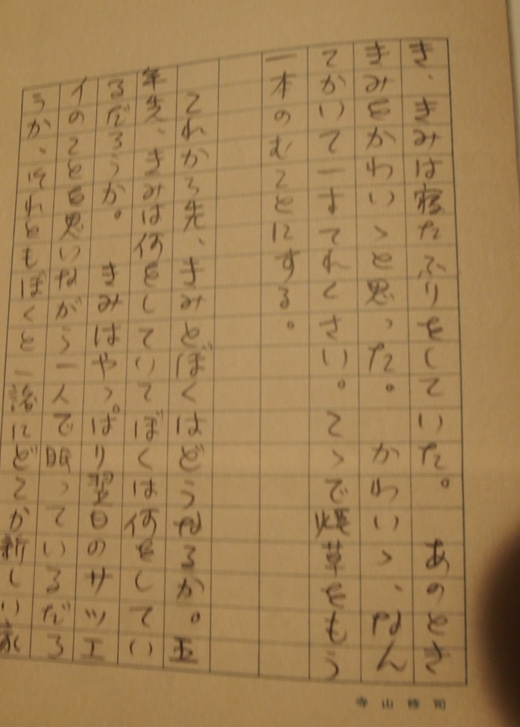 き、きみは寝たふりをしていた。　あのとき
きみをかわいゝと思った。　かわいゝ、なん
てかいて一寸てれくさい。こゝで煙草をもう
一本のむことにする。
これから先、きみとぼくはどうなるか。五
年先、きみは何をしていてぼくは何をしてい
るだろうか。　きみはやっぱり翌日のサツエ
イのことを思いながら一人で眠っているだろ
うか、それともぼくと一諸にどこか新しい家
寺山修司